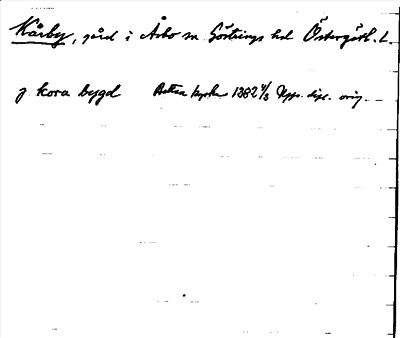 Kårby, gård i Åsbo sn Göstrings hd Östergötl. l.
j kora bygd Bettna kyrka 1382 1/3 Upps. dipl. orig.